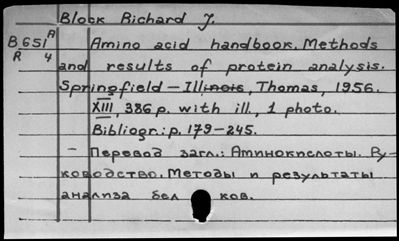 Block Richard J.
B651 A Amino acid handbook. Methods
R 4 and results of protein analysis.
Springfield - Illinois, Thomas, 1956.
XIII, 386 p. with ill., 1 photo.
Bibliogr.: p. 179-245.
- Перевод загл.: Аминокислоты. Ру-
ководство. Методы и результаты
анализа бел ков.